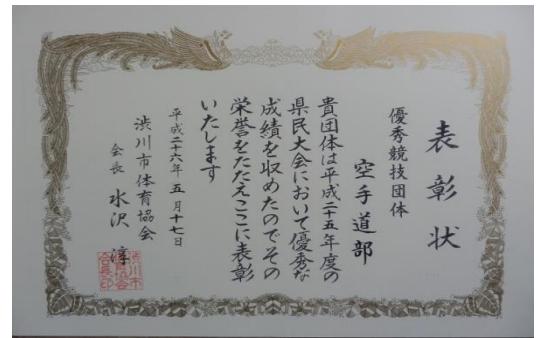 表彰状
優秀競技団体
空手道部
貴団体は平成二十五年度の
県民大会において優秀な
成績を収めたのでその
栄誉をたたえここに表彰
いたします
平成二十六年五月十七日
渋川市体育協会
会長 水沢 淳